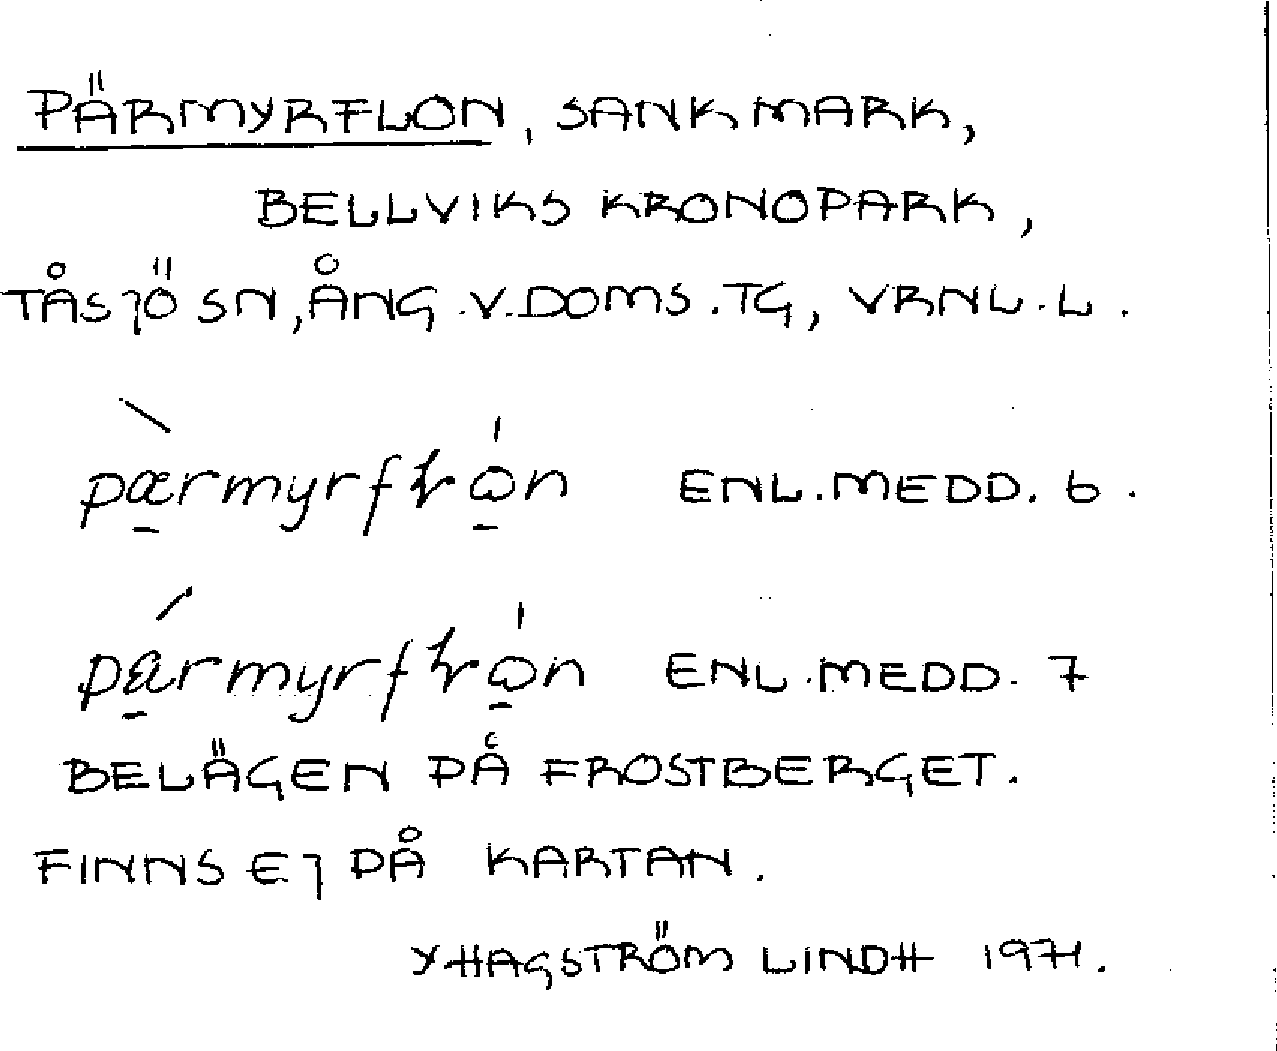 PÄRMYRFLON, SANKMARK,
BELLVIKS KRONOPARK,
TÅSJÖ SN, ÅNG.V.DOMS.TG, VRNL.L.
ENL.MEDD. 6.
ENL.MEDD. 7
BELÄGEN PÅ FROSTBERGET.
FINNS EJ PÅ KARTAN.
Y HAGSTRÖM LINDH 1971.